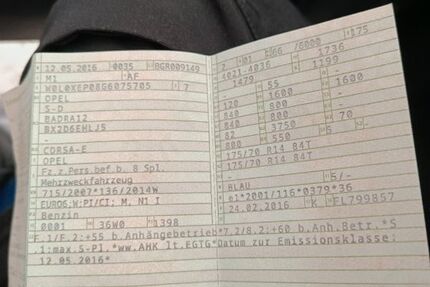 12.05.2016 0035 BGR009149
M1 AF
W0L0XEP08G6075705 7
OPEL
S-D
BADRA12
BX2D6EHLJ5
-
CORSA-E
OPEL
Fz.z.Pers.bef.b. 8 Spl.
Mehrzweckfahrzeug
715/2007*136/2014W
EURO6;W;PI/CI; M, N1 I
Benzin
0001 36W0 1398
7 01 66 /6000 175
4021-4036 1736
1479 1199
- 55 -
120 1600 1600
840 800 -
840 800 -
82 3750 70
80 550 5
175/70 R14 84T
175/70 R14 84T
-
BLAU 5/-
e1*2001/116*0379*36
24.02.2016 K FL799857
F.1/F.2:+55 b.Anhängebetrieb*7.2/8.2:+60 b.Anh.Betr.*S
.1:max.S-Pl.*ww.AHK lt.EGTG*Datum zur Emissionsklasse:
12.05.2016*